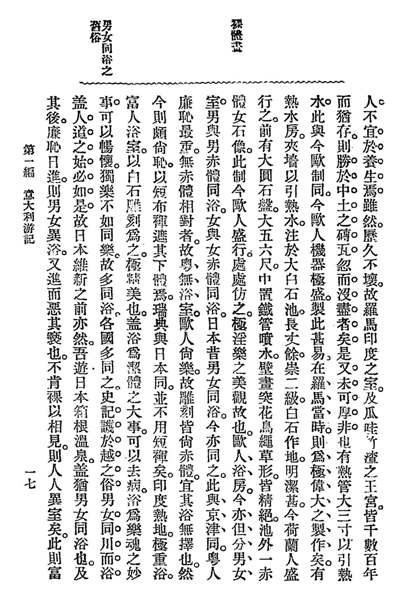 裸體畫
人不宜於養生焉。雖然。歷久不壞。故羅馬印度之室。及瓜哇丫渣之王宮。皆千數百年
而猶存。則勝於中土之磚瓦。忽而沒盡者矣。是又未可厚非也。有熱管大三寸以引熱
水。此與今歐制同。今歐人機器極盛。製此甚易。在羅馬當時。則爲極偉大之製作矣。有
熱水房。夾墻以引熱水。注於大白石池。長丈餘。崇二級。白石作地。明潔甚。今荷蘭人盛
行之。前有大圓石盤。大五六尺。中置鐵管噴水。壁畫突花鳥繩草形。皆精絕。池外一赤
體女石像。此制今歐人盛行。處處仿之。極淫樂之美觀故也。歐人浴房。今亦但分男女
室。男與男赤體同浴。女與女赤體同浴。日本昔男女同浴。今亦同之。此與京津同。粵人
廉恥最重。無赤體相對者。故粵無浴室。歐人尙樂。故雕刻皆尙赤體。宜其浴無擇也。然
今則頗尙恥。以短布褌遮其下體焉。瑞典與日本同。並不用短褌矣。印度熱地極重浴。
男女同浴之
舊俗
富人浴室。以白石雕刻爲之。極精美也。蓋浴爲潔體之大事。可以去病。浴爲樂魂之妙
事。可以暢懷。獨樂不如同樂。故多同浴。各國多同之。史記譏於越之俗。男女同川而浴。
蓋人道之始必如是。故日本維新之前亦然。吾遊日本箱根溫泉。蓋猶男女同浴也。及
其後廉恥日進。則男女異浴。又進而惡其褻也。不肯裸以相見。則人人異室矣。此則富
第一編 意大利游記
一七